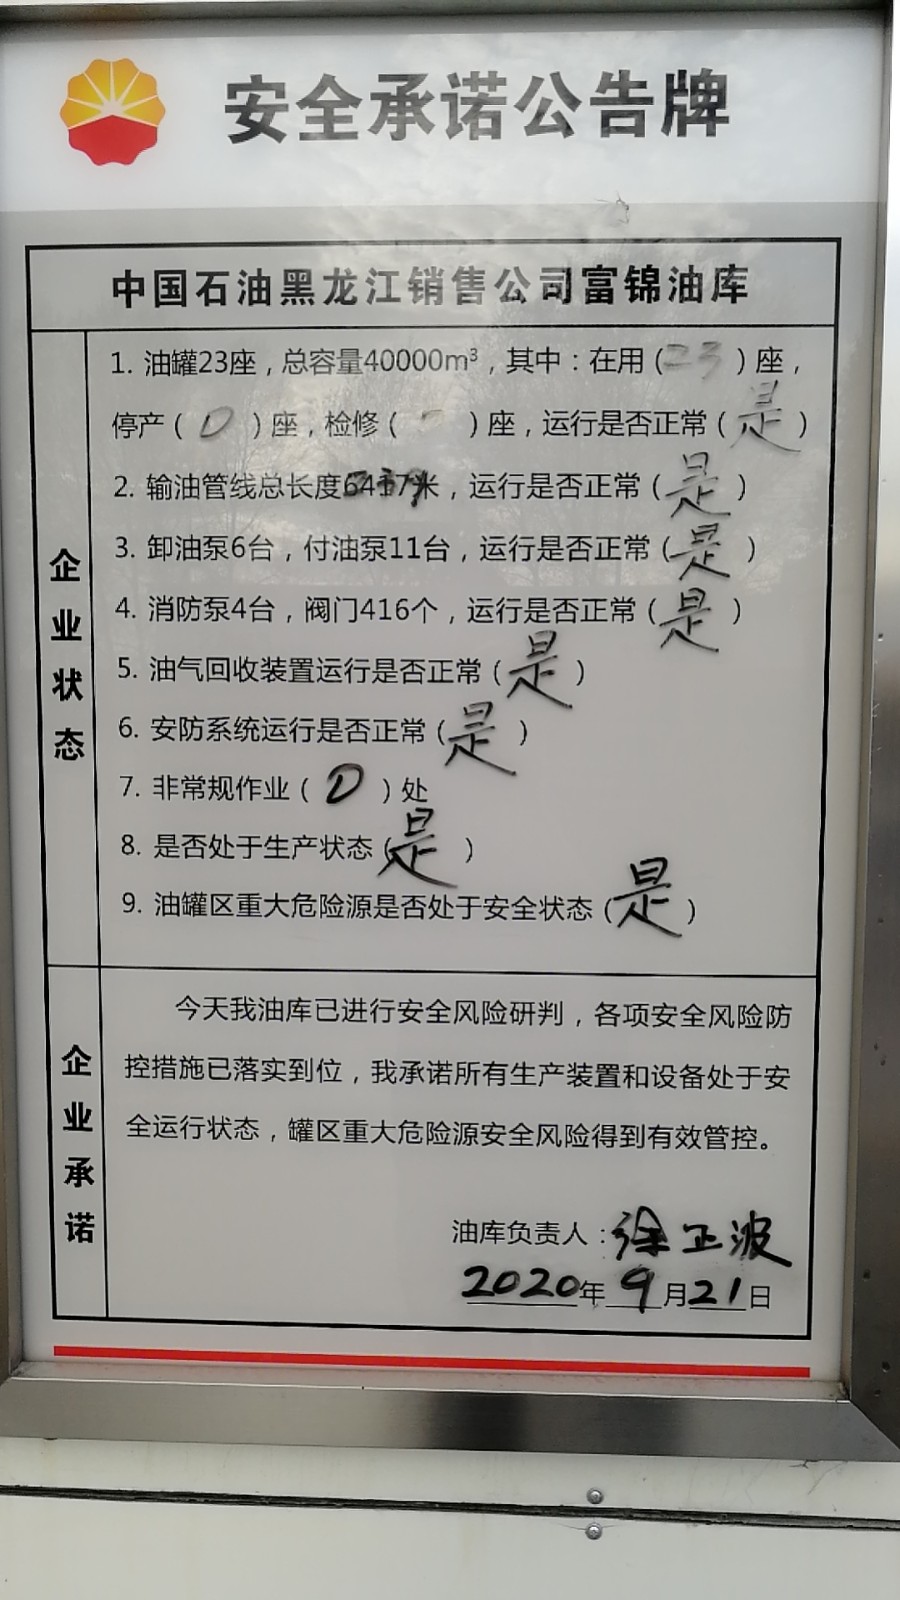 安全承诺公告牌
中国石油黑龙江销售公司富锦油库
企业状态
1. 油罐23座，总容量40000m³，其中：在用（23）座，
停产（0）座，检修（ ）座，运行是否正常（是）
2. 输油管线总长度米，运行是否正常（是）
3. 卸油泵6台，付油泵11台，运行是否正常（是）
4. 消防泵4台，阀门416个，运行是否正常（是）
5. 油气回收装置运行是否正常（是）
6. 安防系统运行是否正常（是）
7. 非常规作业（0）处
8. 是否处于生产状态（是）
9. 油罐区重大危险源是否处于安全状态（是）
企业承诺
今天我油库已进行安全风险研判，各项安全风险防
控措施已落实到位，我承诺所有生产装置和设备处于安
全运行状态，罐区重大危险源安全风险得到有效管控。
油库负责人：徐正波
2020年9月21日